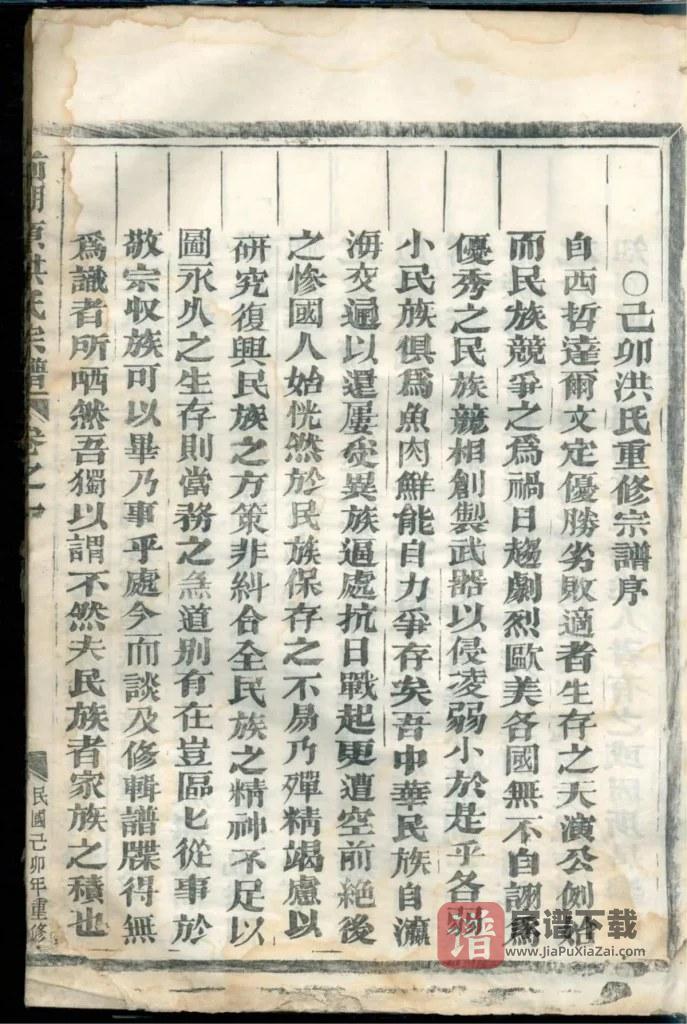 ○己卯洪氏重修宗譜序
自西哲達爾文定優勝劣敗適者生存之天演公例始
而民族競爭之爲禍日趨劇烈歐美各國無不自詡爲
優秀之民族競相創製武器以侵凌弱小於是乎各弱
小民族俱爲魚肉鮮能自力爭存矣吾中華民族自瀛
海交通以還屢受異族逼處抗日戰起更遭空前絕後
之慘國人始恍然於民族保存之不易乃殫精竭慮以
研究復興民族之方策非糾合全民族之精神不足以
圖永久之生存則當務之急道別有在豈區匕從事於
敬宗収族可以畢乃事乎處今而談及修輯譜牒得無
爲識者所哂然吾獨以謂不然夫民族者家族之積也
洪氏宗譜 卷之
民國己卯年重修
谱 家谱下载
www.JiaPuXiaZai.com